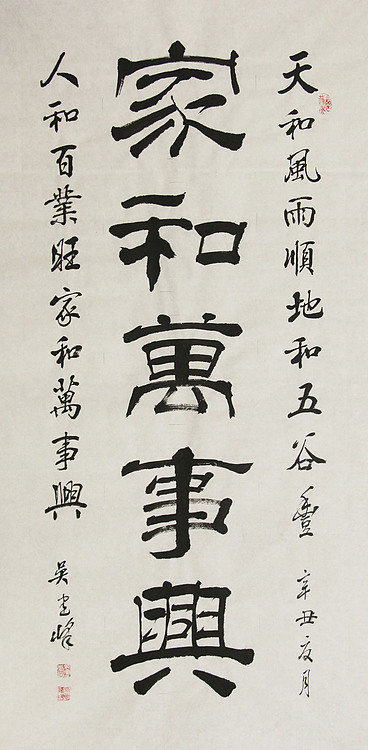 天和風雨順地和五谷豐 辛丑夏月
家和萬事興
人和百業旺家和萬事興 吳 峰